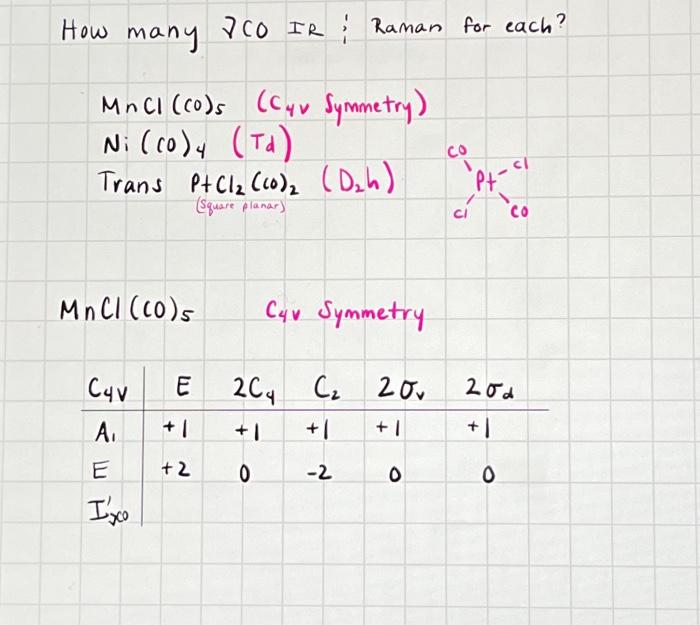 How many νCO IR ; Raman for each?
MnCl(CO)5 (C4v Symmetry)
Ni(CO)4 (Td)
Trans PtCl2(CO)2 (D2h)
(Square planar)
CO Cl
Pt
Cl CO
MnCl(CO)5 C4v Symmetry
C4v E 2C4 C2 2σv 2σd
A1 +1 +1 +1 +1 +1
E +2 0 -2 0 0